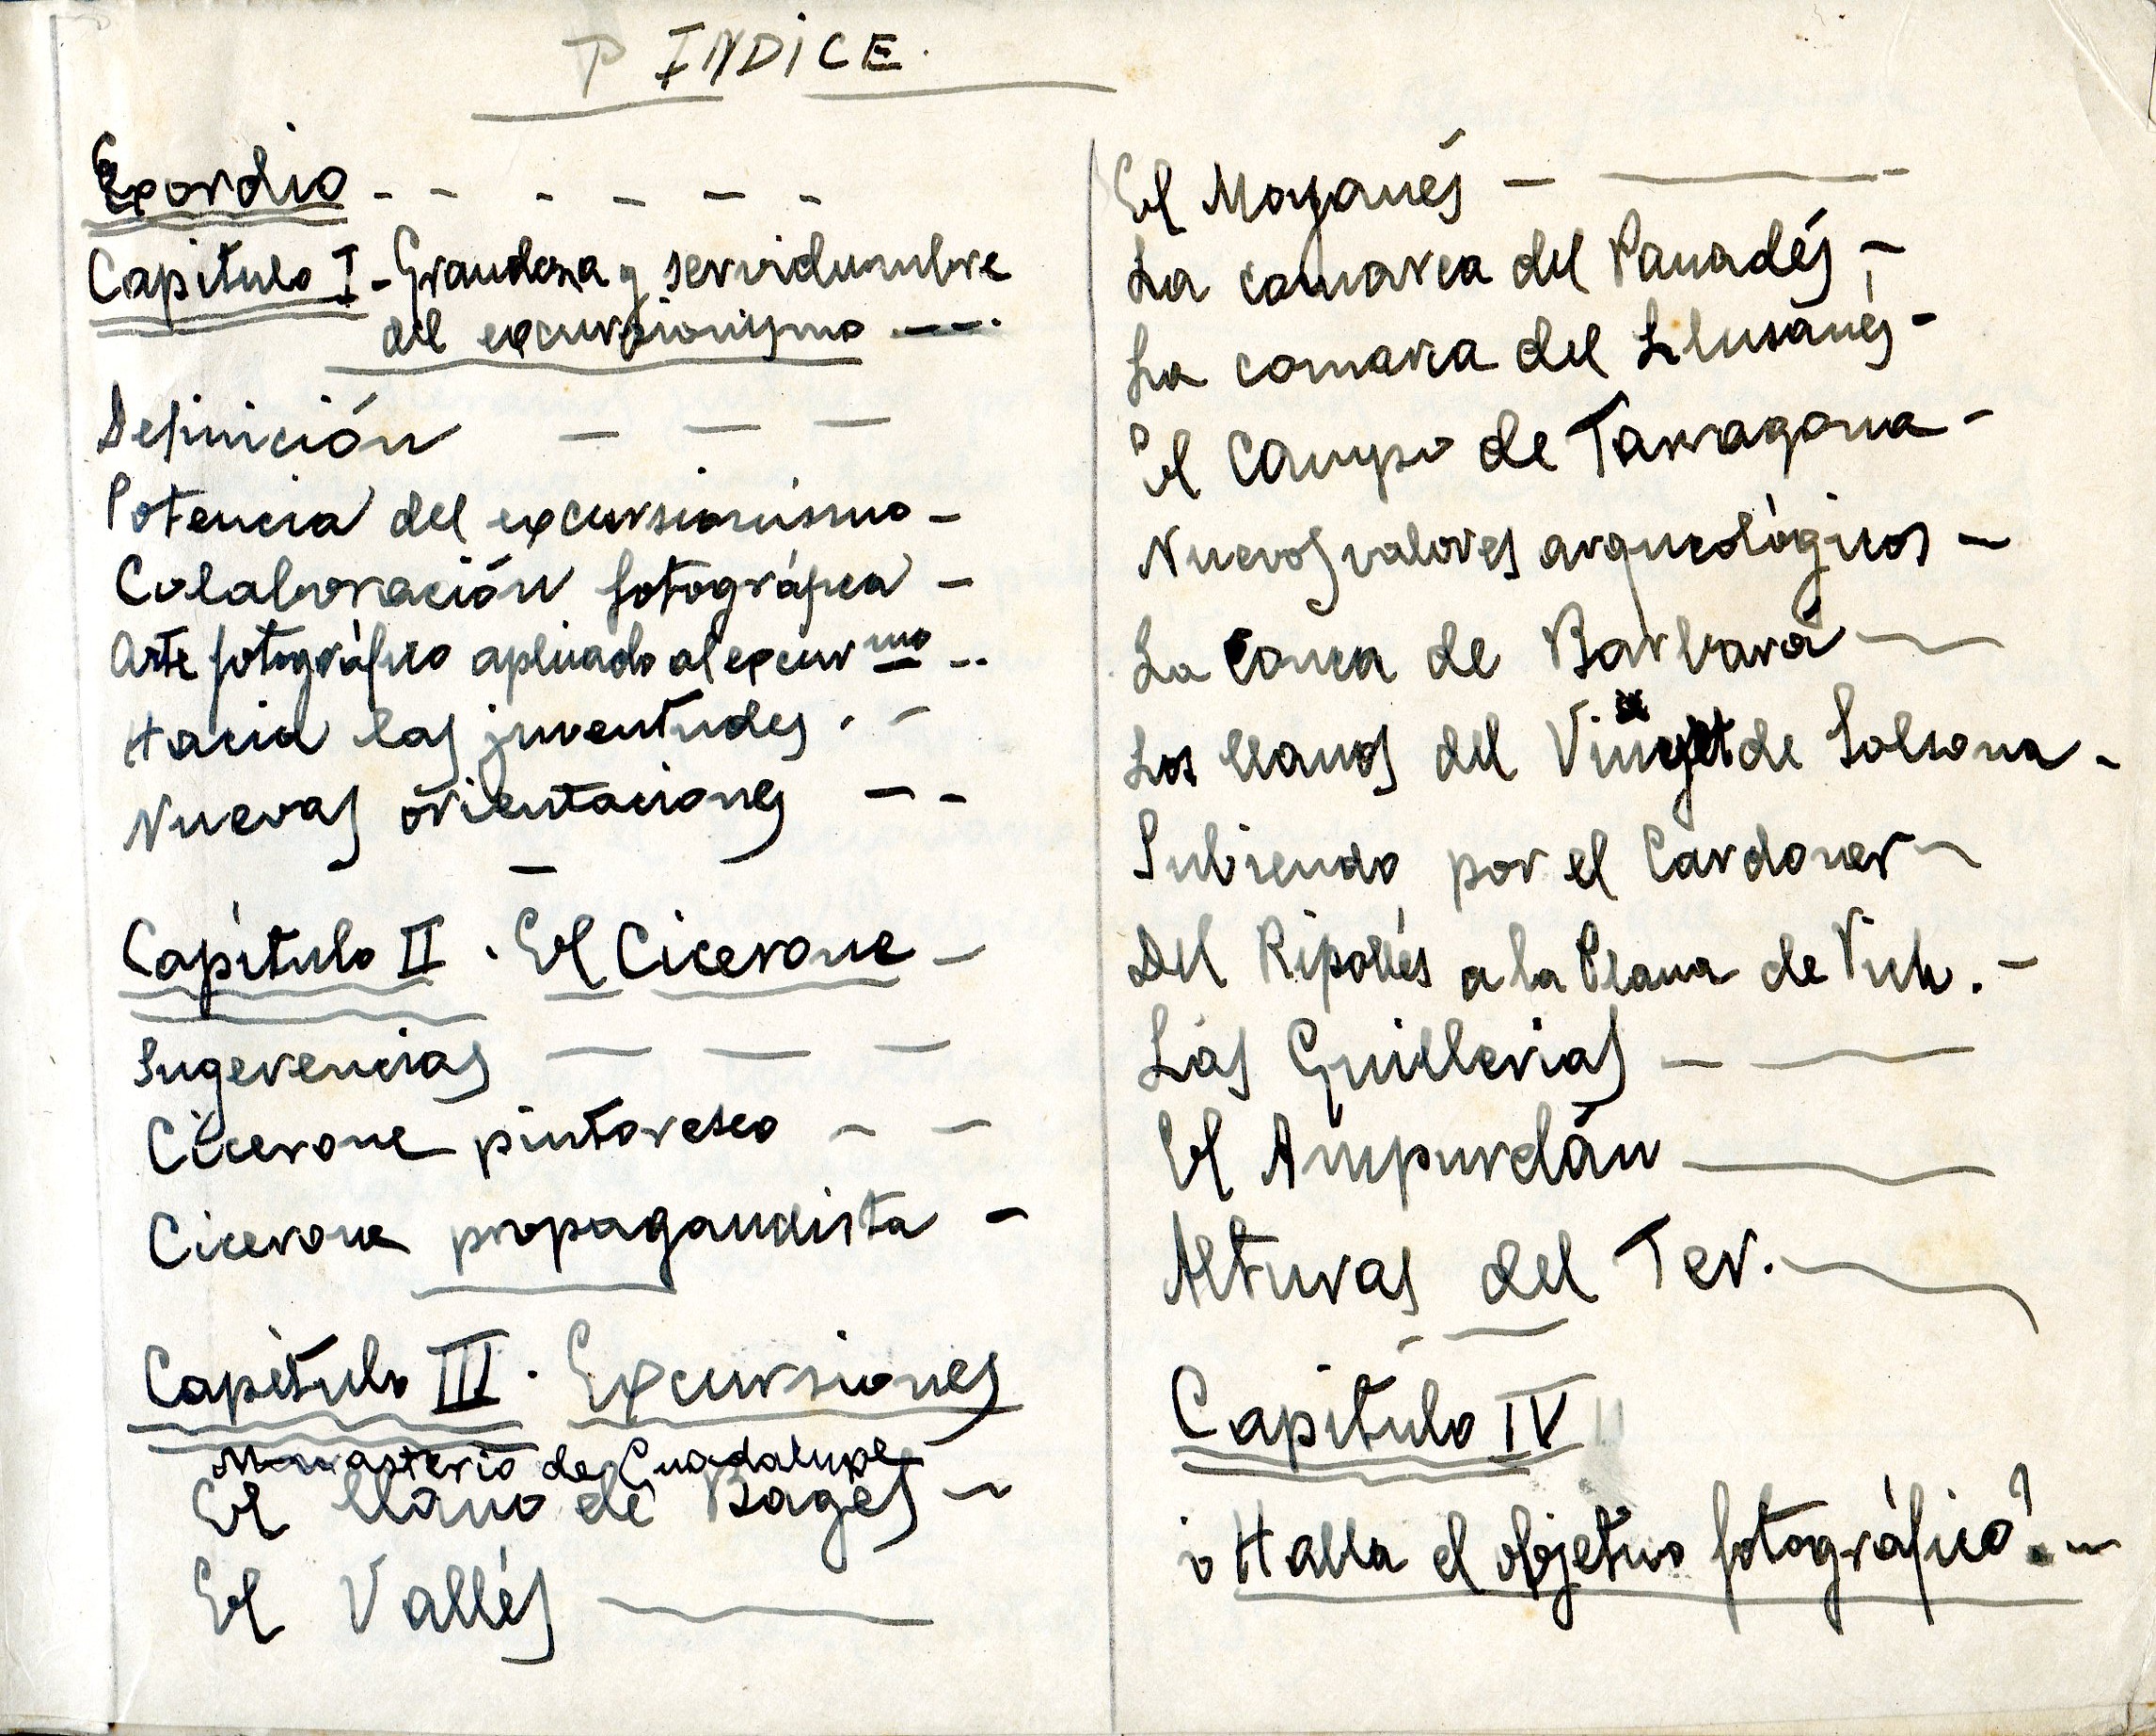 INDICE.
Exordio - - - - - -
Capitulo I - Grandeza y servidumbre
del excursionismo ---.
Definición — — —
Potencia del excursionismo -
Colaboración fotográfica -
Arte fotográfico aplicado al excur mo --
Hacia las juventudes. -
Nuevas orientaciones - -
Capítulo II. El Cicerone -
Sugerencias — — —
Cicerone pintoresco - -
Cicerone propagandista -
Capítulo III. Excursiones
Monasterio de Guadalupe -
El llano de Bages -
El Vallés —
El Moyanés - —
La comarca del Panadés -
La comarca del Llusanés -
El Campo de Tarragona -
Nuevos valores arqueológicos -
La Conca de Barbará —
Los llanos del de Solsona -
Subiendo por el Cardoner -
Del Ripollés a la Plana de Vich. -
Las Guillerias - —
El Ampurdán —
Alturas del Ter. —
Capítulo IV
¿Halla el objetivo fotográfico? -